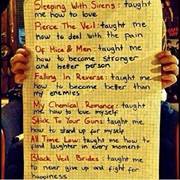 Sleeping With Sirens: taught
me how to love
Pierce The Veil: taught me
how to deal with the pain
Of Mice & Men: taught me
how to become stronger
and better person
Falling In Reverse: taught me
how to become better than
my enemies
My Chemical Romance: taught
me how to love myself
Stick To Your Guns: taught me
how to stand up for myself
All Time Low: taught me how to
find laughter in every moment
Black Veil Brides: taught me
to never give up and fight for
happiness.